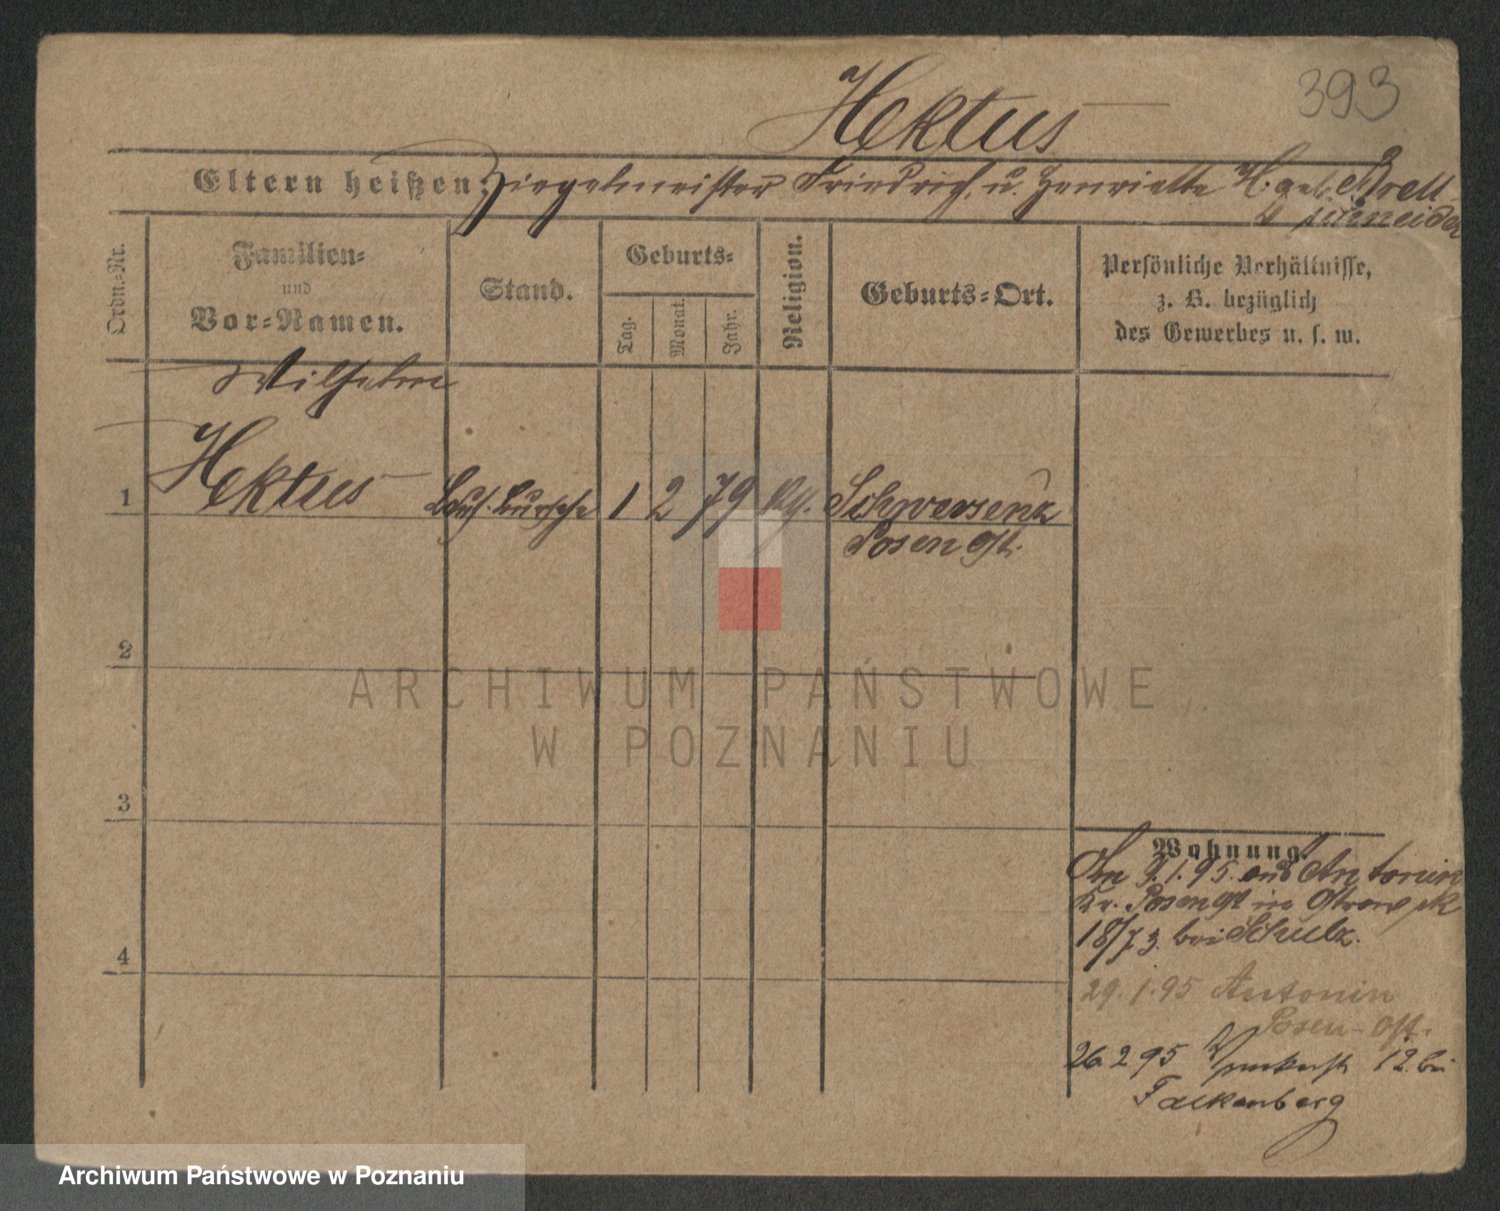 Hektus
393
Eltern heißen: Ziegelmeister Friedrich u. Henriette H. geb. Brett-
schneider
Ordn.-Nr.
Familien-
und
Vor-Namen.
Stand.
Geburts-
Tag.
Monat.
Jahr.
Religion.
Geburts-Ort.
Persönliche Verhältnisse,
z. B. bezüglich
des Gewerbes u. s. w.
Wilhelm
1 Hektus Lauf-Bursche 1 2 79 Schwersenz
Posen Ost.
2
3
4
Wohnung.
Am 9.1.95. aus Antonin
Kr. Posen Ost in Ostrowek
18/73. bei Schulz.
29.1.95 Antonin
Posen-Ost.
26.2.95 12. bei
Falkenberg
ARCHIWUM PAŃSTWOWE
W POZNANIU
Archiwum Państwowe w Poznaniu